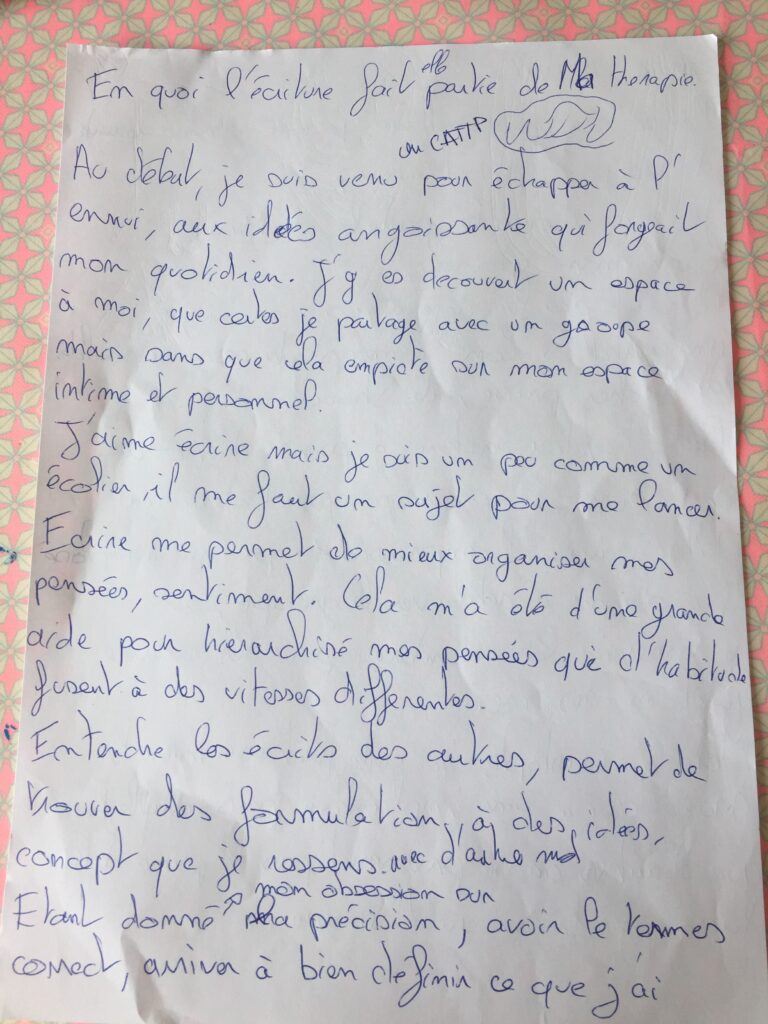 En quoi l'écriture fait elle partie de Ma therapie.
au CATTP
Au début, je suis venu pour échapper à l'
ennui, aux idées angoissante qui forgeait
mon quotidien. J'y es decouvert un espace
à moi, que certes je partage avec un groupe
mais sans que cela empiète sur mon espace
intime et personnel.
J'aime écrire mais je suis un peu comme un
écolier, il me faut un sujet pour me lancer.
Ecrire me permet de mieux organiser mes
pensées, sentiment. Cela m'a été d'une grande
aide pour hierarchisé mes pensées que d'habitude
fusent à des vitesses differentes.
Entendre les écrits des autres, permet de
trouver des formulation, à des idées,
concept que je ressens avec d'autre mot
mon obsession sur
Etant donné la précision, avoir le termes
correct, arriver à bien definir ce que j'ai